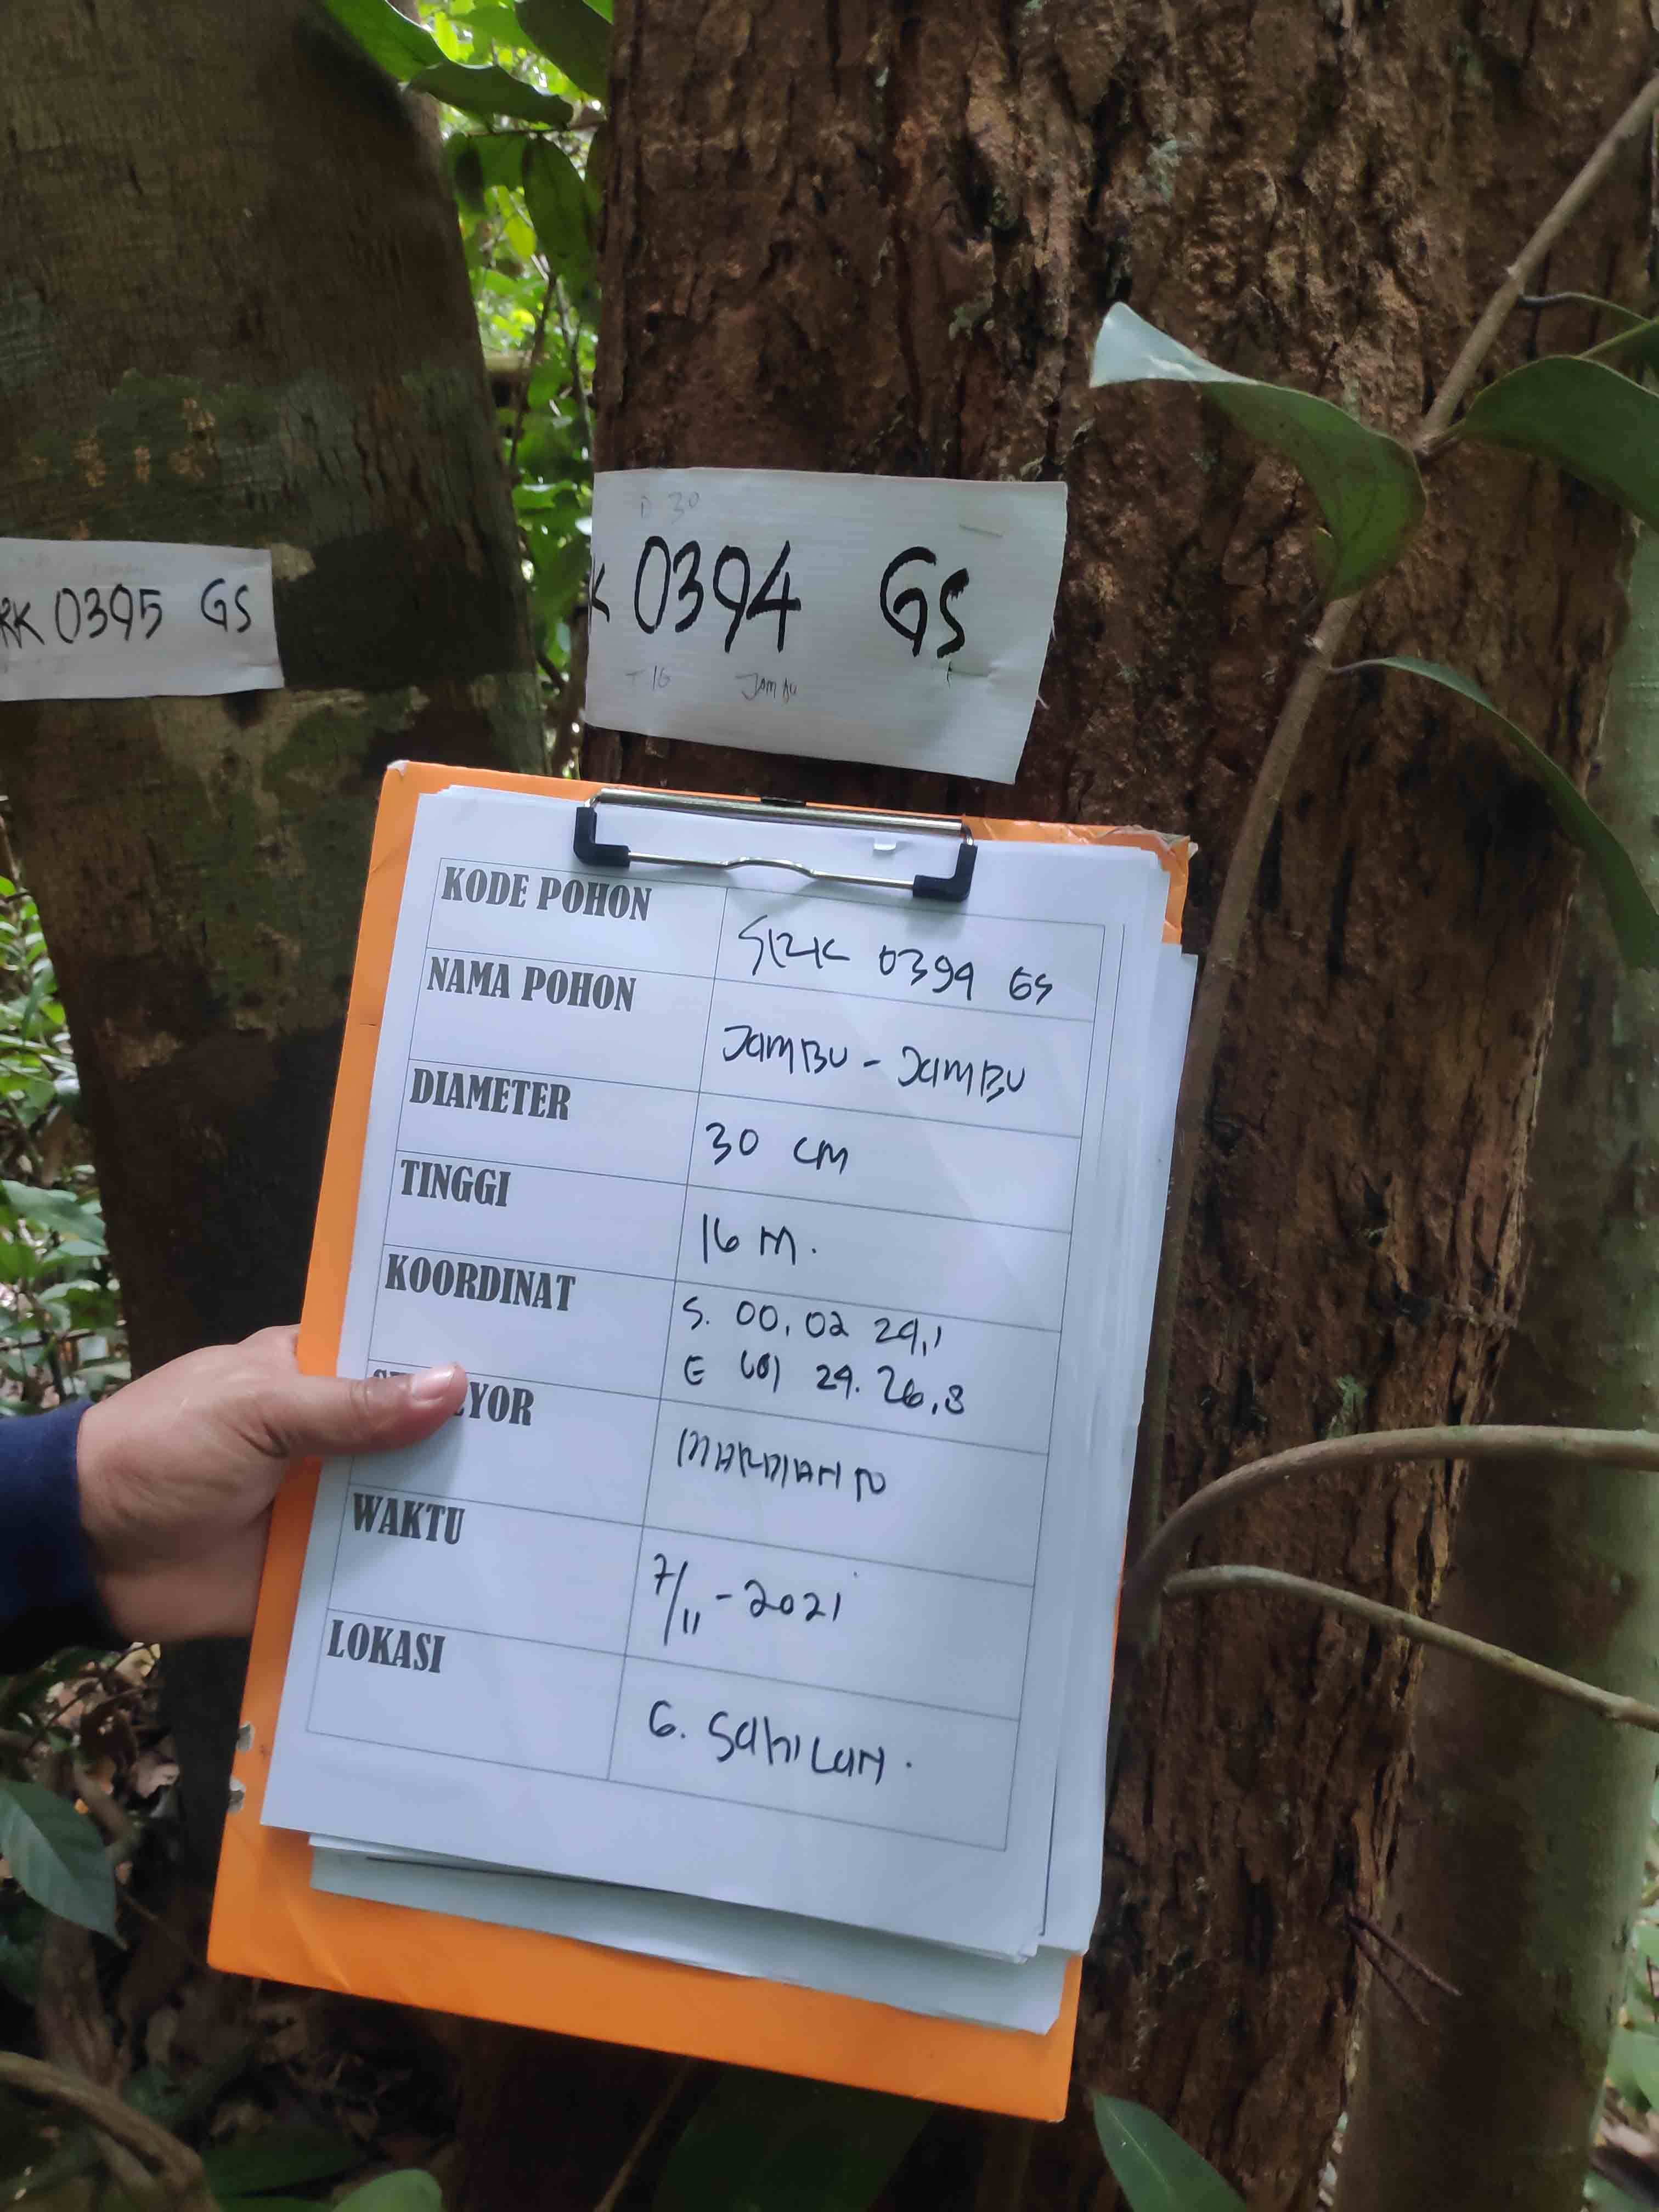 D 30
K 0394 GS
T 16 Jambu
RK 0395 GS
KODE POHON SRK 0394 GS
NAMA POHON JAMBU - JAMBU
DIAMETER 30 CM
TINGGI 16 M.
KOORDINAT S. 00. 02 29,1
E 101 29. 26,8
YOR MARDIANTO
WAKTU 7/11 - 2021
LOKASI G. SAHILAN.